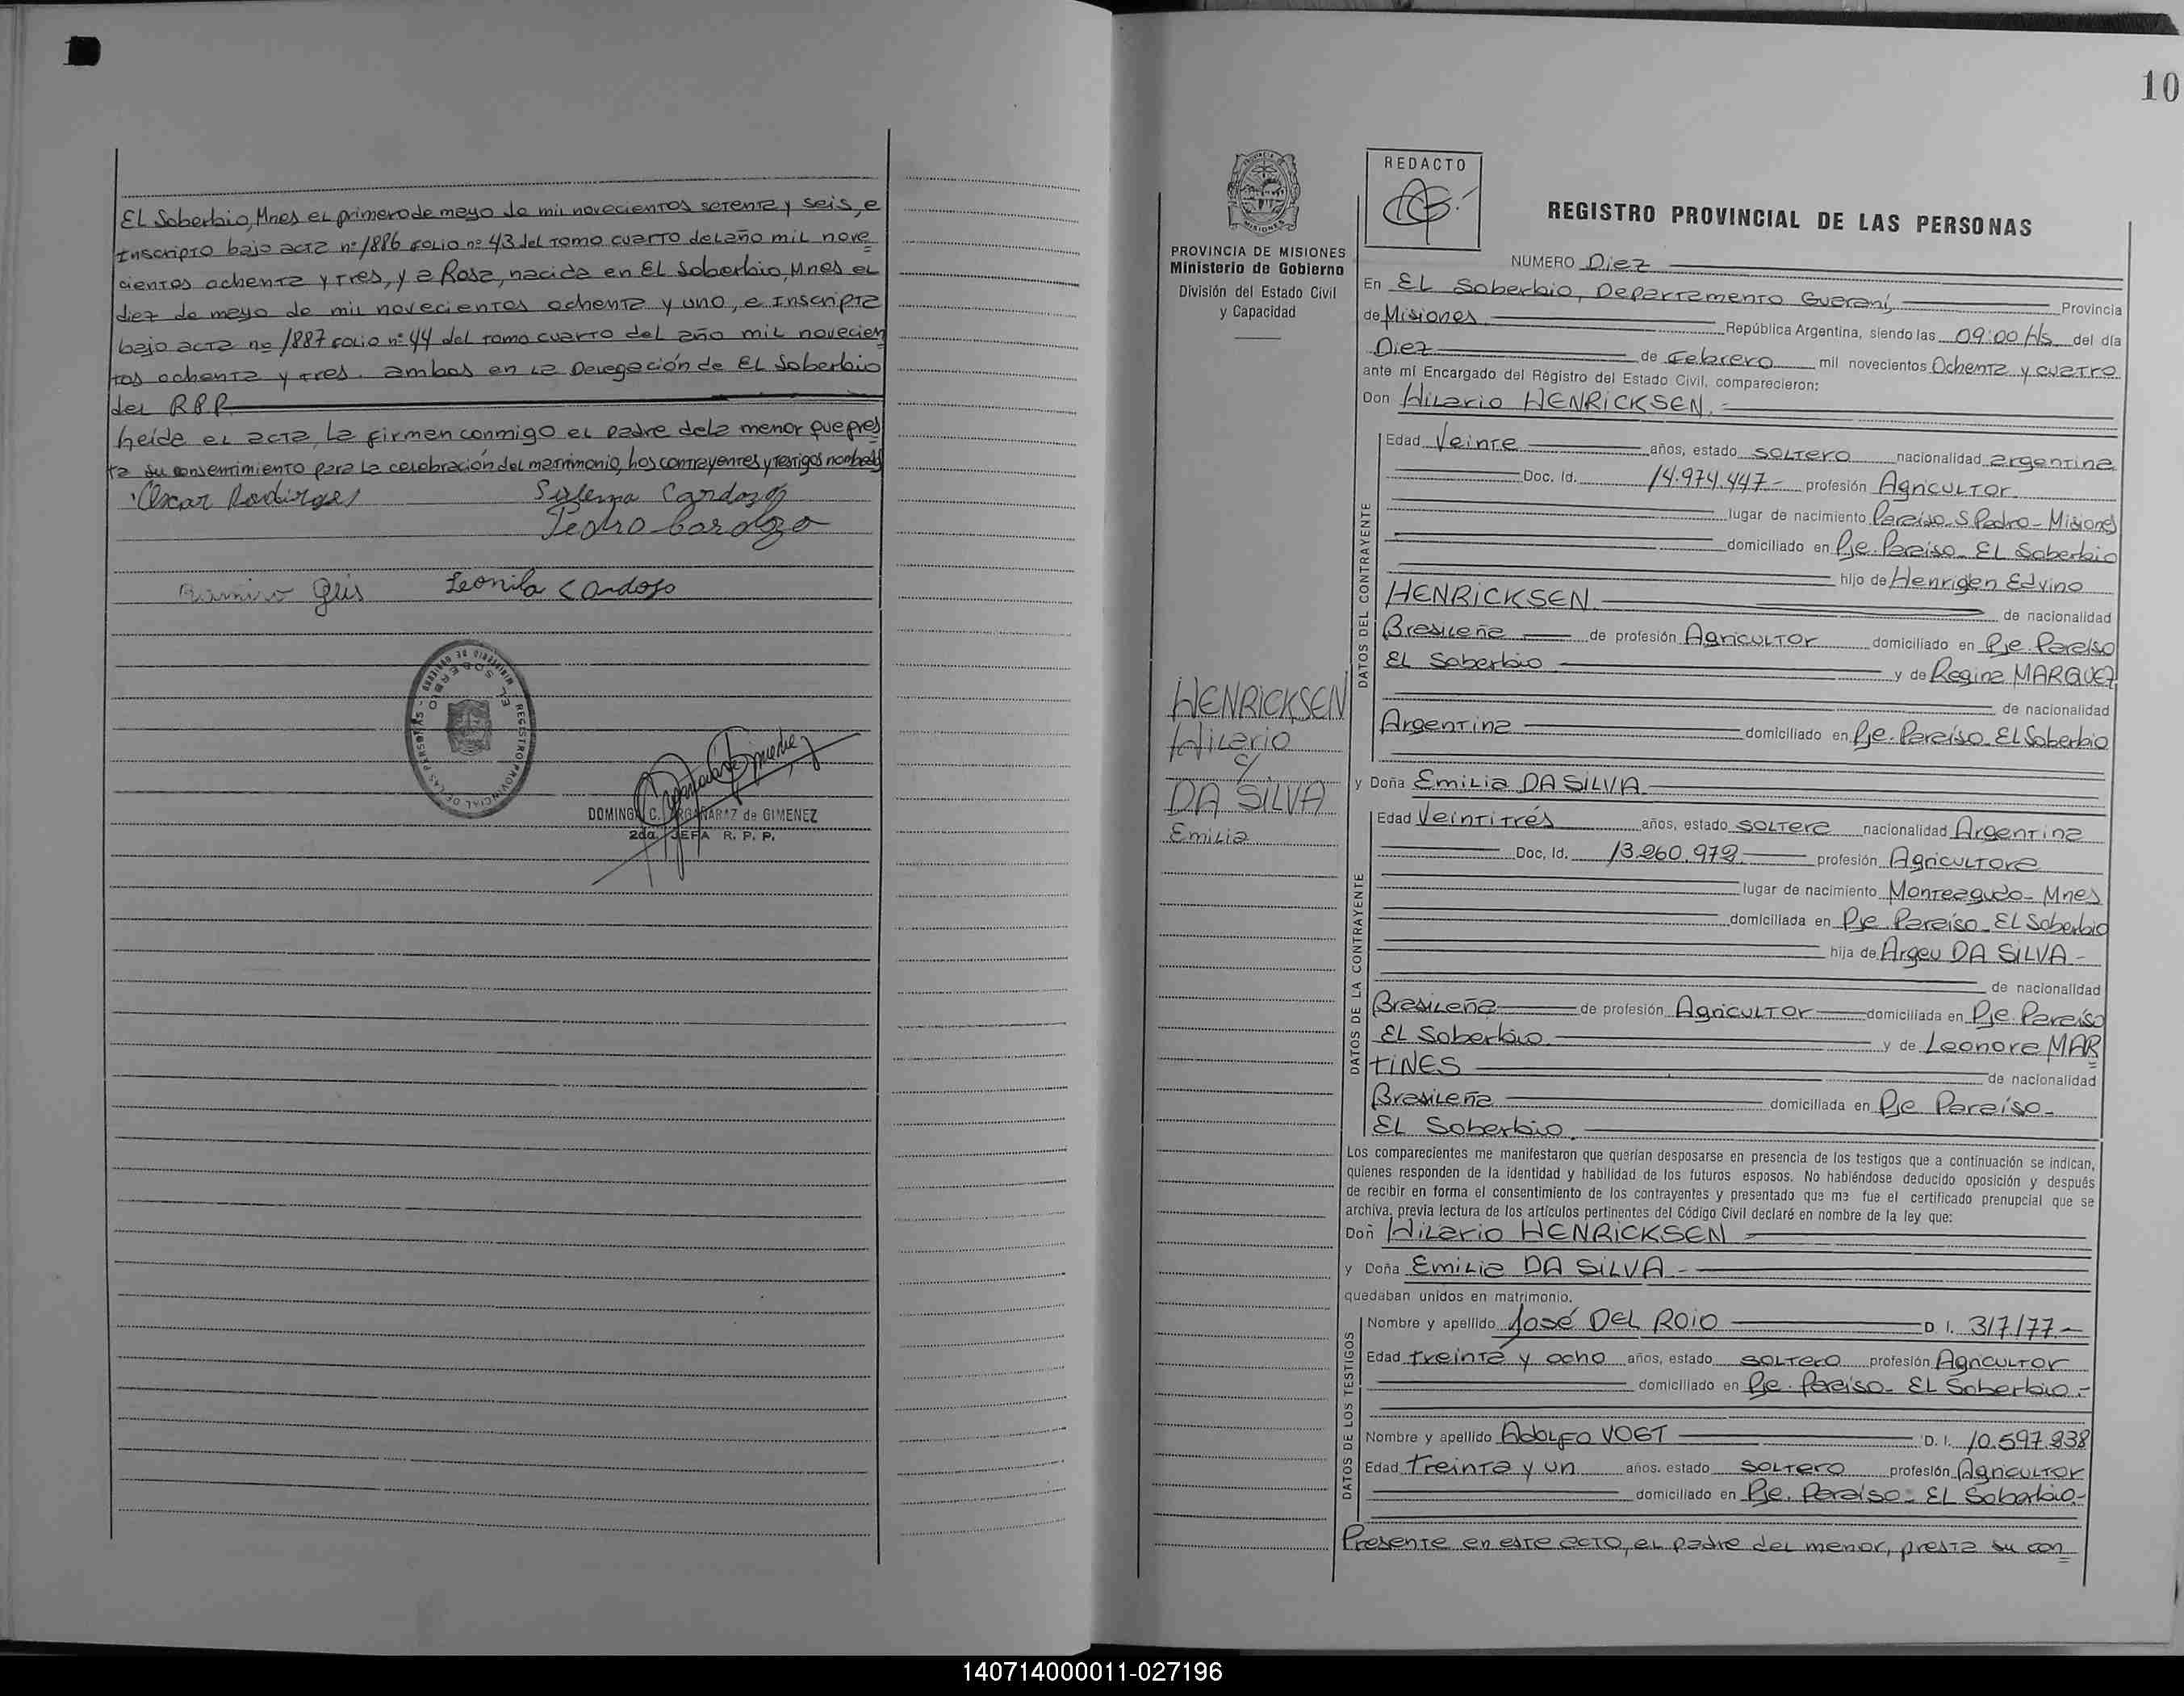 El Soberbio, Mnes el primero de mayo de mil novecientos setenta y seis, e
Inscripto bajo acta nº 1886 folio nº 43 del tomo cuarto del año mil nove
cientos ochenta y tres, y a Rosa, nacida en El Soberbio, Mnes el
diez de mayo de mil novecientos ochenta y uno, e Inscripta
bajo acta nº 1887 folio nº 44 del tomo cuarto del año mil novecien
tos ochenta y tres. ambos en la Delegación de El Soberbio
del R.P.P.
Leída el acta, la firman conmigo el padre dela menor que pres
ta su consentimiento para la celebración del matrimonio, los contrayentes y testigos
Oscar Rodirges
Cardozo
Pedro Cardozo
Ramiro
Leonila Cardozo
REGISTRO PROVINCIAL DE LAS PERSONAS - MINISTERIO DE GOBIERNO
EL SOBERBIO
DOMINGA C. ARGAÑARAZ de GIMENEZ
2da. JEFA R. P. P.
10
REDACTO
PROVINCIA DE MISIONES
Ministerio de Gobierno
División del Estado Civil
y Capacidad
REGISTRO PROVINCIAL DE LAS PERSONAS
NUMERO Diez
En El Soberbio, Departamento Guaraní, Provincia
de Misiones República Argentina, siendo las 09:00 Hs del día
Diez de Febrero mil novecientos Ochenta y cuatro
ante mí Encargado del Registro del Estado Civil, comparecieron:
Don Hilario HENRICKSEN.-
DATOS DEL CONTRAYENTE
Edad Veinte años, estado soltero nacionalidad argentina
Doc. Id. 14.974.447.- profesión Agricultor
lugar de nacimiento Paraiso. S. Pedro - Misiones
domiciliado en Pje. Paraiso - El Soberbio
hijo de Edvino
HENRICKSEN de nacionalidad
Brasileña de profesión Agricultor domiciliado en Pje Paraiso
El Soberbio y de Regina MARQUEZ
de nacionalidad
Argentina domiciliado en Pje. Paraíso. El Soberbio
HENRICKSEN
Hilario
c/.
DA SILVA
Emilia
y Doña Emilia DA SILVA
DATOS DE LA CONTRAYENTE
Edad Veintitrés años, estado soltera nacionalidad Argentina
Doc, Id. 13.260.972 profesión Agricultora
lugar de nacimiento Monteagudo - Mnes
domiciliada en Pje. Paraíso - El Soberbio
hija de Argeu DA SILVA -
de nacionalidad
Brasileña de profesión Agricultor domiciliada en Pje. Paraíso
El Soberbio y de Leonora MAR
TINES de nacionalidad
Brasileña domiciliada en Pje Paraíso -
El Soberbio.
Los comparecientes me manifestaron que querían desposarse en presencia de los testigos que a continuación se indican,
quienes responden de la identidad y habilidad de los futuros esposos. No habiéndose deducido oposición y después
de recibir en forma el consentimiento de los contrayentes y presentado que me fue el certificado prenupcial que se
archiva, previa lectura de los artículos pertinentes del Código Civil declaré en nombre de la ley que:
Don Hilario HENRICKSEN
y Doña Emilia DA SILVA.-
quedaban unidos en matrimonio.
DATOS DE LOS TESTIGOS
Nombre y apellido José DEL ROIO D. I. 317.177.-
Edad treinta y ocho años, estado soltero profesión Agricultor
domiciliado en Pje. Paraiso - El Soberbio.-
Nombre y apellido Adolfo VOGT D. I. 10.597.838
Edad treinta y un años. estado soltero profesión Agricultor
domiciliado en Pje. Paraiso - El Soberbio.-
Presente en este acto, el padre del menor, presta su con
140714000011-027196